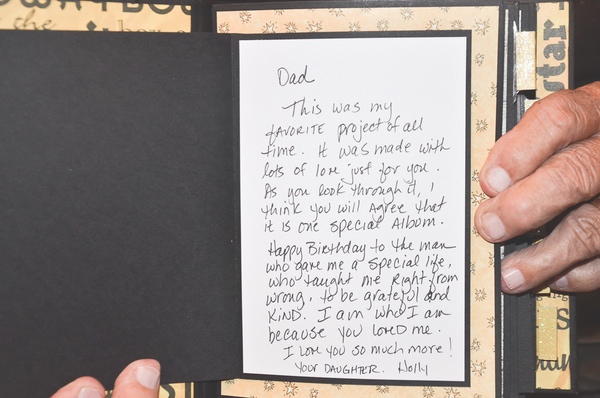 the
star
Dad
This was my
FAVORITE project of all
time. It was made with
lots of love just for you.
As you look through it, I
think you will Agree that
it is one special Album.
Happy Birthday to the man
who gave me a special life,
who taught me Right from
wrong, to be grateful and
KIND. I am who I am
because you loved me.
I love you so much more!
Your DAUGHTER. Holly